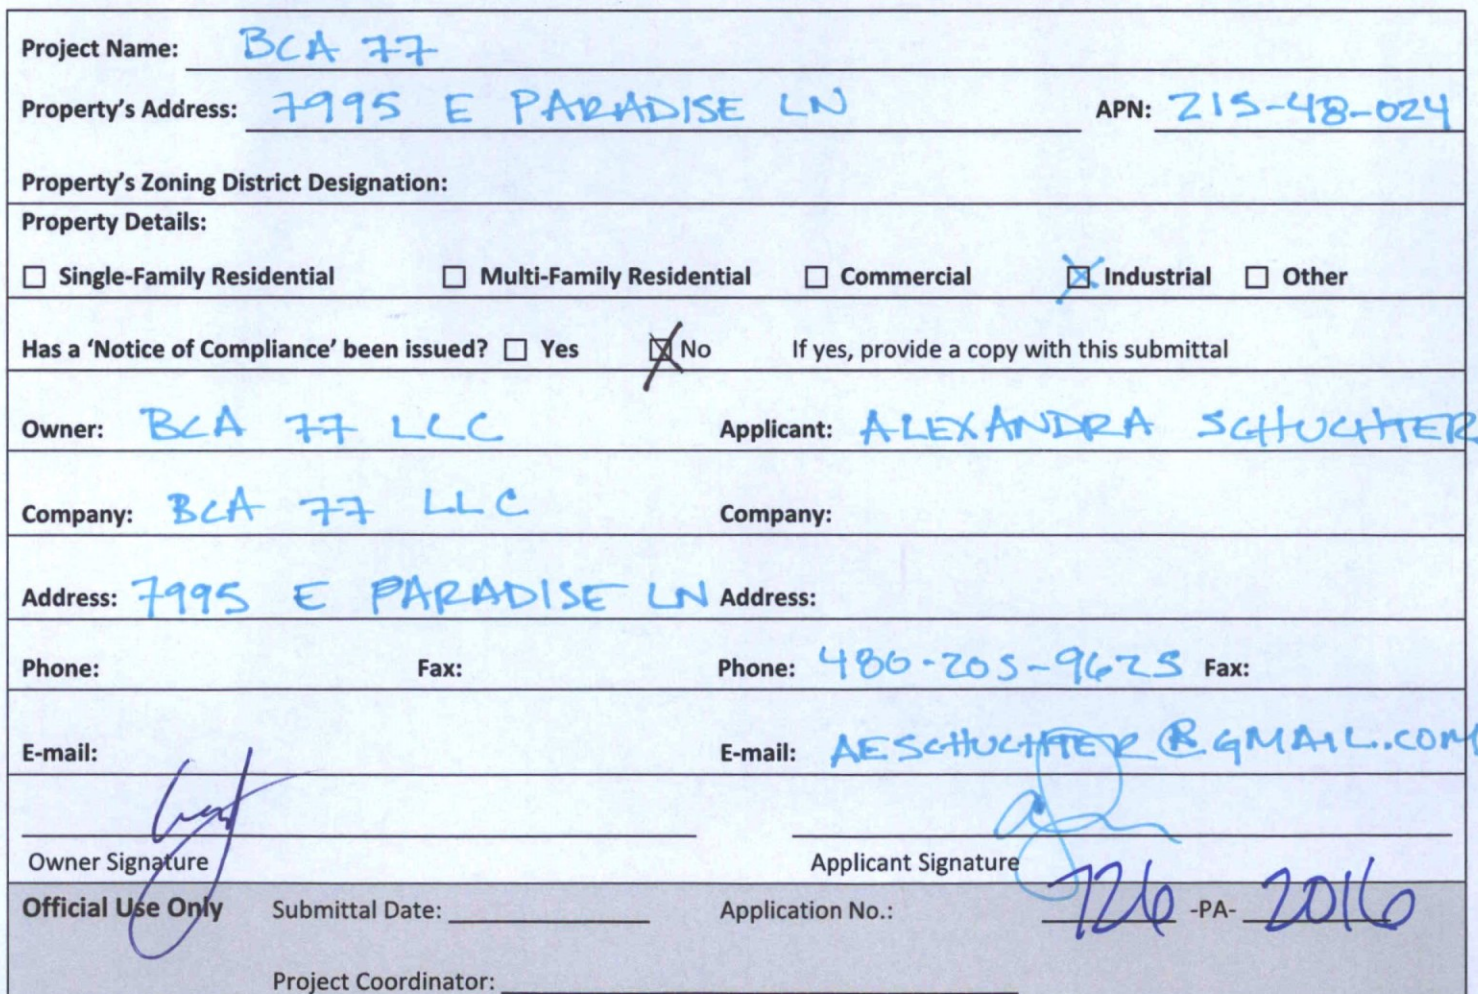 Project Name: BCA 77
Property's Address: 7995 E PARADISE LN APN: 215-48-024
Property's Zoning District Designation:
Property Details:
☐ Single-Family Residential ☐ Multi-Family Residential ☐ Commercial ☒ Industrial ☐ Other
Has a 'Notice of Compliance' been issued? ☐ Yes ☒ No If yes, provide a copy with this submittal
Owner: BCA 77 LLC Applicant: ALEXANDRA SCHUCHTER
Company: BCA 77 LLC Company:
Address: 7995 E PARADISE LN Address:
Phone: Fax: Phone: 480-205-9625 Fax:
E-mail: E-mail: AESCHUCHTER@GMAIL.COM
Owner Signature Applicant Signature
Official Use Only Submittal Date: Application No.: 726 -PA- 2016
Project Coordinator: